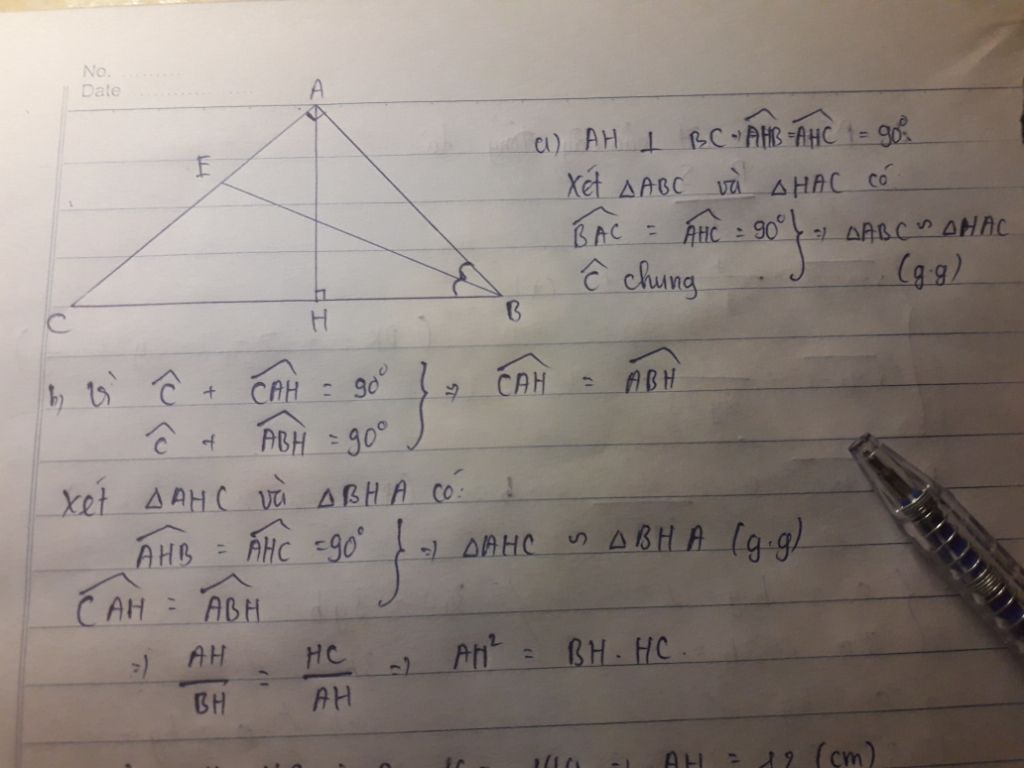 No. ..........
Date ..................
A
E
C
H
B
a) AH ⊥ BC ⇒ \widehat{AHB} = \widehat{AHC} = 90°.
Xét △ABC và △HAC có
\widehat{BAC} = \widehat{AHC} = 90° } ⇒ △ABC ∽ △HAC
Ĉ chung (g.g)
b, Vì Ĉ + \widehat{CAH} = 90° } ⇒ \widehat{CAH} = \widehat{ABH}
Ĉ + \widehat{ABH} = 90°
Xét △AHC và △BHA có:
\widehat{AHB} = \widehat{AHC} = 90° } ⇒ △AHC ∽ △BHA (g.g)
\widehat{CAH} = \widehat{ABH}
⇒ AH/BH = HC/AH ⇒ AH² = BH . HC.
⇒ AH = 12 (cm)